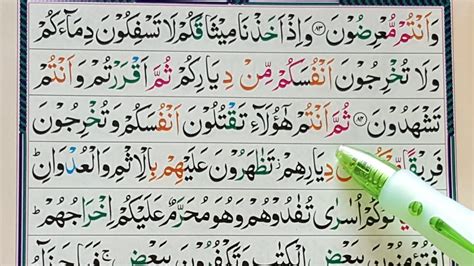 وَاَنْتُمْ مُّعْرِضُوْنَ ﴿۸۳﴾ وَاِذْ اَخَذْنَا مِيْثَاقَكُمْ لَا تَسْفِكُوْنَ دِمَآءَكُمْ
وَلَا تُخْرِجُوْنَ اَنْفُسَكُمْ مِّنْ دِيَارِكُمْ ثُمَّ اَقْرَرْتُمْ وَاَنْتُمْ
تَشْهَدُوْنَ ﴿۸۴﴾ ثُمَّ اَنْتُمْ هٰٓؤُلَآءِ تَقْتُلُوْنَ اَنْفُسَكُمْ وَتُخْرِجُوْنَ
فَرِيْقًا دِيَارِهِمْ تَظٰهَرُوْنَ عَلَيْهِمْ بِالْاِثْمِ وَالْعُدْوَانِ ؕ
اُسٰرٰى تُفٰدُوْهُمْ وَهُوَ مُحَرَّمٌ عَلَيْكُمْ اِخْرَاجُهُمْ ؕ
اَفَتُؤْمِنُوْنَ بِبَعْضِ الْكِتٰبِ وَتَكْفُرُوْنَ بِبَعْضٍ ۚ فَمَا جَزَآءُ